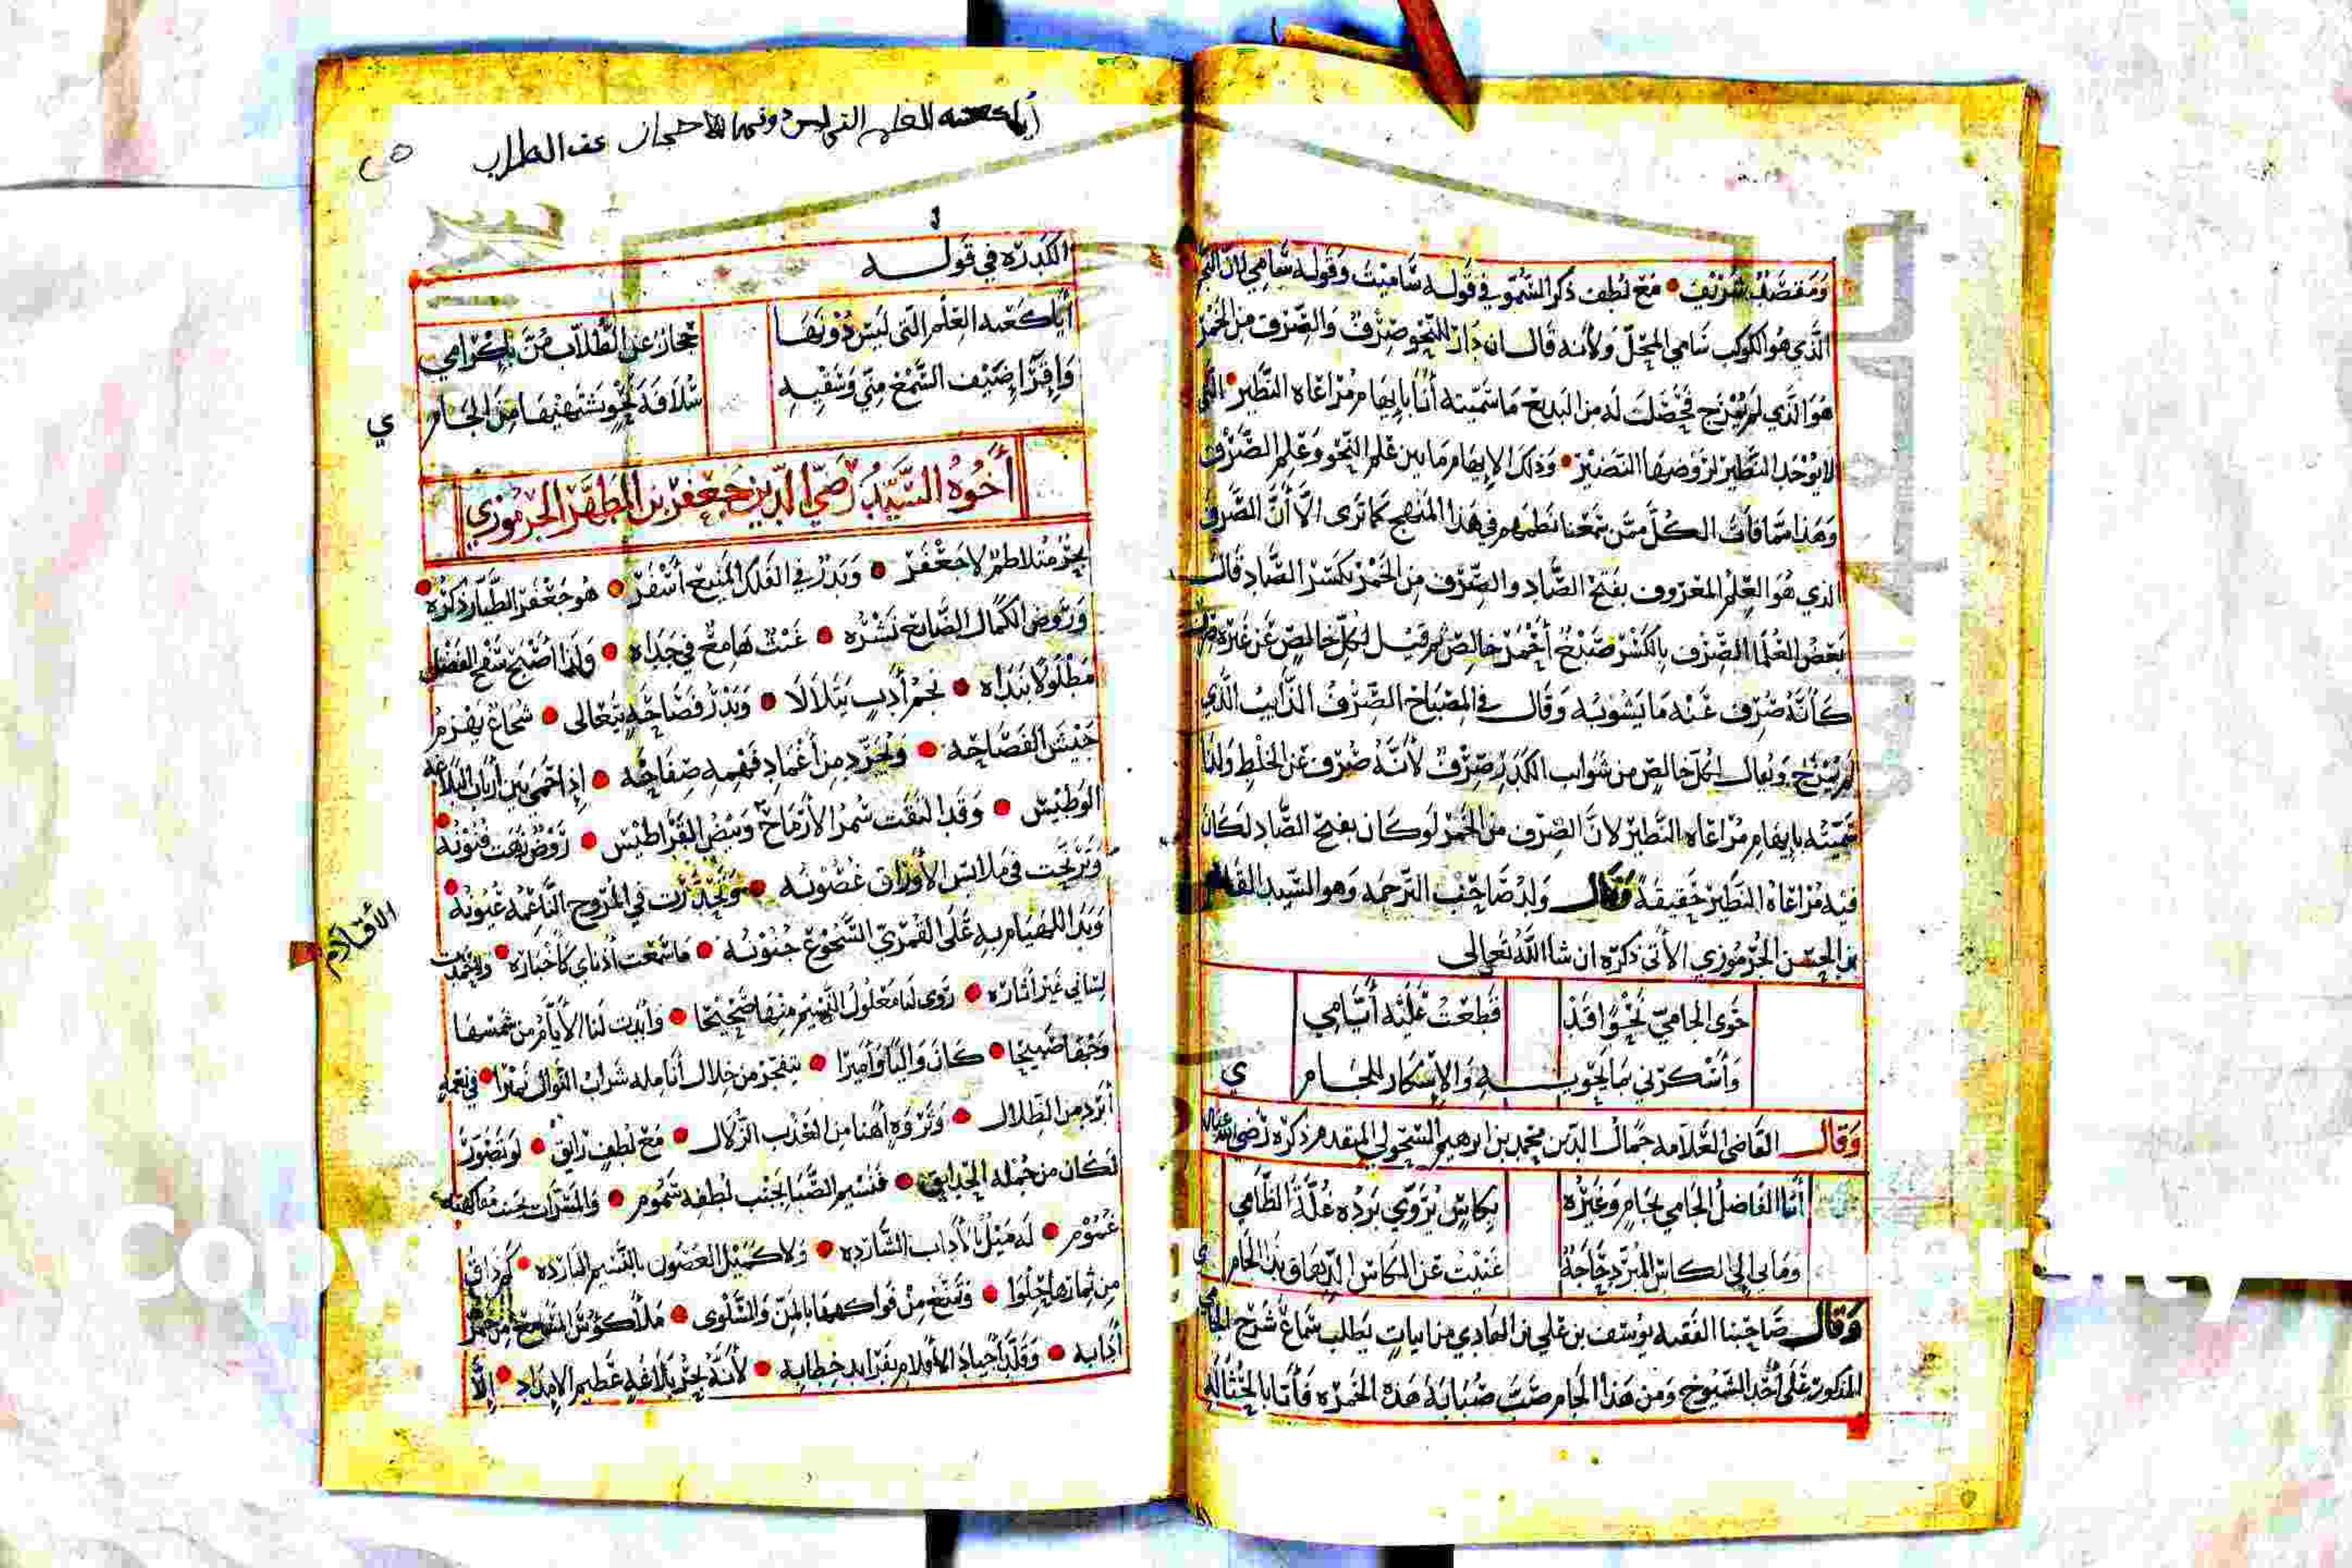 ومقصد شريف مع لطف ذكر السمو في قوله ساميت وقوله سامي لان
الذي هو الكوكب سامي المحل ولأنه قال ان دار للنحو صرف والصرف من الخمر
هو الذي لم يمزج فحصلت له من البديع ما سميته أنا بإيهام مراعاة النظير التي
لا يوجد النظير لروضها النضير وذلك الإيهام ما بين علم النحو وعلم الصرف
وهذا مما فات الكل ممن سمعنا نظمهم في هذا المنهج كما ترى الا أن الصرف
الذي هو العلم المعروف بفتح الصاد والصرف من الخمر بكسر الصاد قال
بعض العلما الصرف بالكسر صبغ أحمر خالص ثم قيل لكل خالص عن غيره صرف
كأنه صرف عنه ما يشوبه وقال في المصباح الصرف الذايب الذي
لم يمزج ويقال لكل خالص من شوايب الكدر صرف لأنه صرف عن الخلط ولذا
سميته بإيهام مراعاة النظير لان الصرف من الخمر لو كان بفتح الصاد لكان
فيه مراعاة النظير حقيقة وقال ولد صاحب الترجمة وهو السيد
بن الحسن الجرموزي الأتي ذكره ان شا الله تعالى
حوى الجامي نحوا قد قطعت عليه أيامي
وأسكرني بما يحويه والإسكار للجام ي
وقال القاضي العلامة جمال الدين محمد بن ابرهيم السحولي المقدم ذكره رضي الله عنه
أتنا الفاضل الجامي بجام وغيره بكاس يروي برده غلة الظامي
وما بي إلى الكاس المبرد حاجة غنيت عن الكاس الدهاق بذا الجام ي
وقال صاحبنا الفقيه يوسف بن علي بن الهادي من ابيات يطلب سماع شرح
المذكور على أحد الشيوخ ومن هذا الجام صب صبابة هذه الخمره فأتا
أيا كعبة العلم التي ليس دونها حجاز عن الطلاب
الكدره في قوله
أيا كعبة العلم التي ليس دونها حجاز عن الطلاب من بإكرامي
وإقرا ضيف السمع مني وشفيه سلافة نحو يشتهيها من الجام
ي
أخوه السيد رضي الدين جعفر بن المطهر الجرموزي
بحر متلاطم لا جعفر وبدر في الفلك المنيع أسفر هو جعفر الطيار ذكره
وروض الكمال الضايع نشره غيث هامع في جداه ولذا اصبح سفح الفضل
مطلولا بنداه نجم أدب يتلالا وبدر فصاحة يتعالى شجاع يهزم
جيش الفصاحه ويجرد من أغماد فهمه صفاحه إذا حمي بين أرباب البلاغه
الوطيس وقد التقت سمر الأرماح وبيض القراطيس روض زهت فنونه
وترنحت في ملابس الأوراق غصونه وتحدرت في المروج الناعمه عيونه
وبدا للهيام به على القمري السجوع جنونه ما سمعت أذناي كأخباره
الأقلام
لساني غير أثاره روى لنا معلول النسيم منها صحيحا وأبدت لنا الأيام من شمسها
وجها صبيحا كان واليا وأميرا يتفجر من خلال أنامله شراب النوال نميرا
أبرد من الظلال وثروة أهنا من العذب الزلال مع لطف رايق لو تصور
لكان من جملة الحدايق فنسيم الصبا بجنب لطفه سموم والمسرات بجنب مفاكهته
غموم له ميل بالأداب الشارده ولا كميل الغصون بالنسيم البارده كم ذاق
من ثمارها حلوا وتمتع من فواكهها بالمن والسلوى ملأ كؤس السمع من خمر
أدابه وقلد أجياد الأقلام بفرايد خطابه لأنه بحر بلاغة عظيم الإمداد إلا